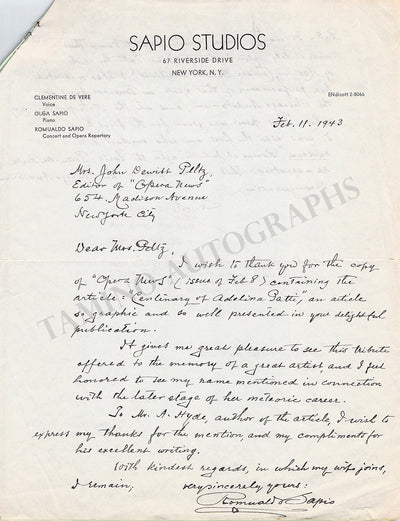 SAPIO STUDIOS
67 RIVERSIDE DRIVE
NEW YORK, N. Y.
CLEMENTINE DE VERE
Voice
OLGA SAPIO
Piano
ROMUALDO SAPIO
Concert and Opera Repertory
ENdicott 2-8066
Feb. 11. 1943
Mrs. John Dewitt Peltz,
Editor of "Opera News"
654 Madison Avenue
New York City
Dear Mrs. Peltz,
I wish to thank you for the copy
of "Opera News" (issue of Feb 8) containing the
article: "Centenary of Adelina Patti", an article
so graphic and so well presented in your delightful
publication.
It gives me great pleasure to see this tribute
offered to the memory of a great artist and I feel
honored to see my name mentioned in connection
with the later stage of her meteoric career.
To Mr. A. Hyde, author of the article, I wish to
express my thanks for the mention, and my compliments for
his excellent writing.
With kindest regards, in which my wife joins,
I remain, very sincerely yours:
Romualdo Sapio
TAMINO AUTOGRAPHS